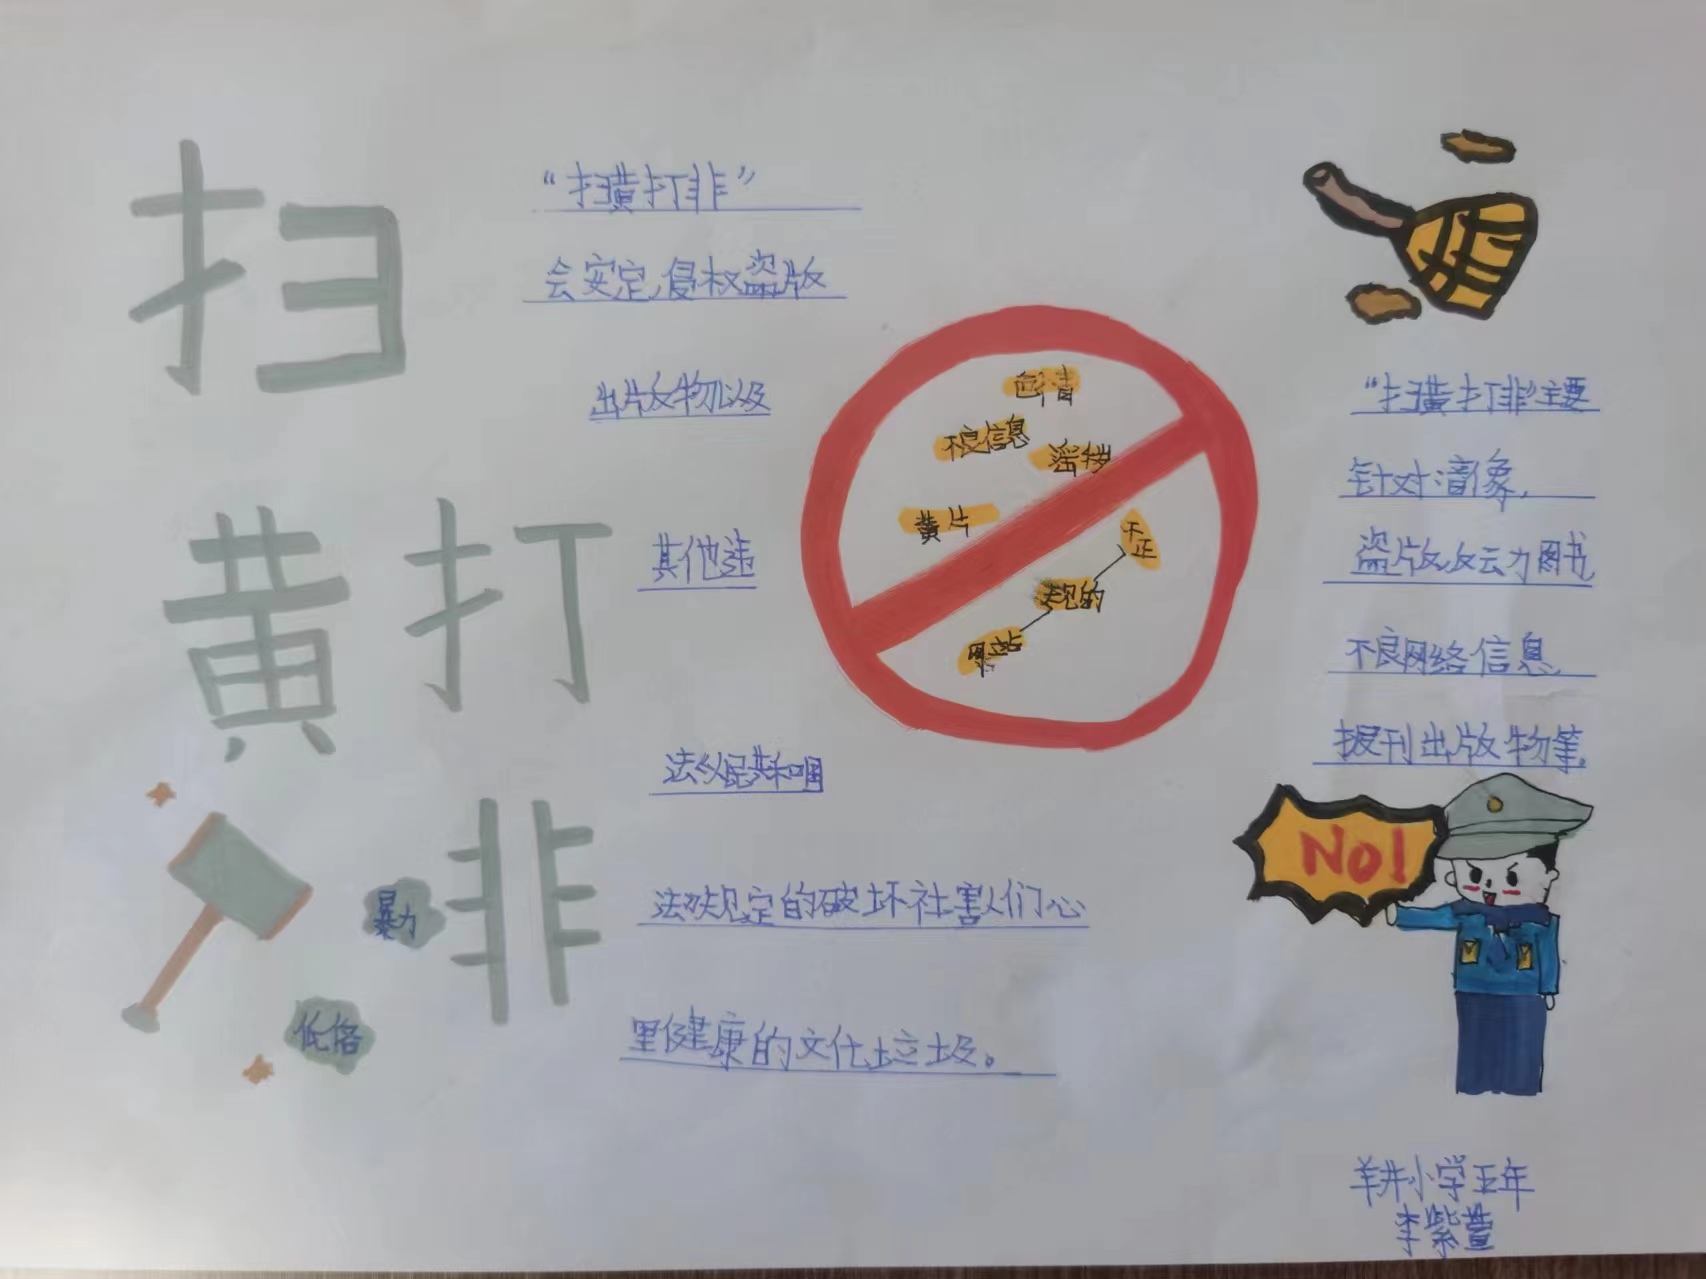 扫
黄打
非
“扫黄打非”
会安定,侵权盗版
出版物以及
其他违
法规定的破坏社害人们心
里健康的文化垃圾。
暴力
低俗
色情
不良信息
淫秽
黄片
不正
规的
网站
“扫黄打非”主要
针对音像,
盗版及云力图书
不良网络信息
报刊出版物等,
No!
羊井小学五年
李紫萱